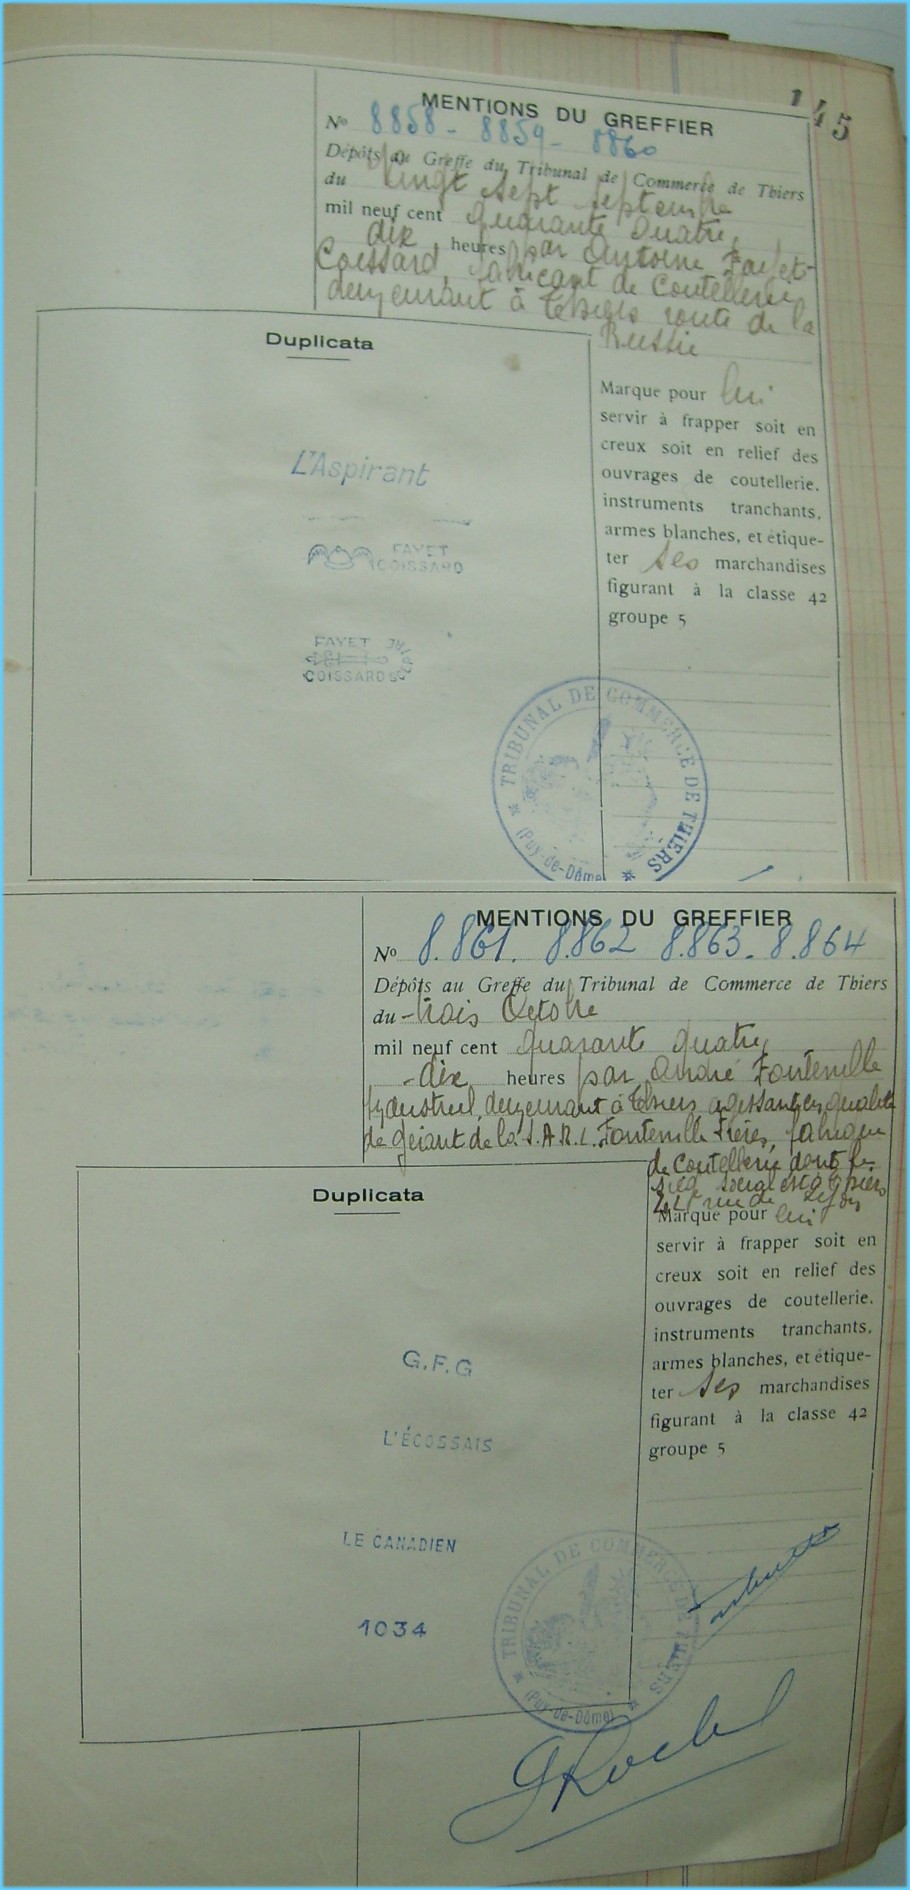 145
MENTIONS DU GREFFIER
No 8858 - 8859 - 8860
Dépôts au Greffe du Tribunal de Commerce de Thiers
du vingt sept septembre
mil neuf cent quarante quatre,
dix heures par Antoine Fayet-
Coissard, fabricant de Coutellerie
demeurant à Thiers route de la
Russie
Duplicata
Marque pour lui
servir à frapper soit en
creux soit en relief des
ouvrages de coutellerie,
instruments tranchants,
armes blanches, et étique-
ter ses marchandises
figurant à la classe 42
groupe 5
L'Aspirant
FAYET
COISSARD
FAYET
COISSARD
TRIBUNAL DE COMMERCE DE THIERS
(Puy-de-Dôme)
MENTIONS DU GREFFIER
No 8.861. 8.862 8.863. 8.864
Dépôts au Greffe du Tribunal de Commerce de Thiers
du - trois Octobre
mil neuf cent quarante quatre,
- dix heures par André Fontenille
Industriel, demeurant à Thiers agissant en qualité
de gérant de la S.A.R.L. Fontenille Frères, fabrique
de Coutellerie dont le
siège social est à Thiers
rue de Lyon
Duplicata
Marque pour lui
servir à frapper soit en
creux soit en relief des
ouvrages de coutellerie,
instruments tranchants,
armes blanches, et étique-
ter ses marchandises
figurant à la classe 42
groupe 5
G.F.G
L'ÉCOSSAIS
LE CANADIEN
1034
TRIBUNAL DE COMMERCE DE THIERS
(Puy-de-Dôme)